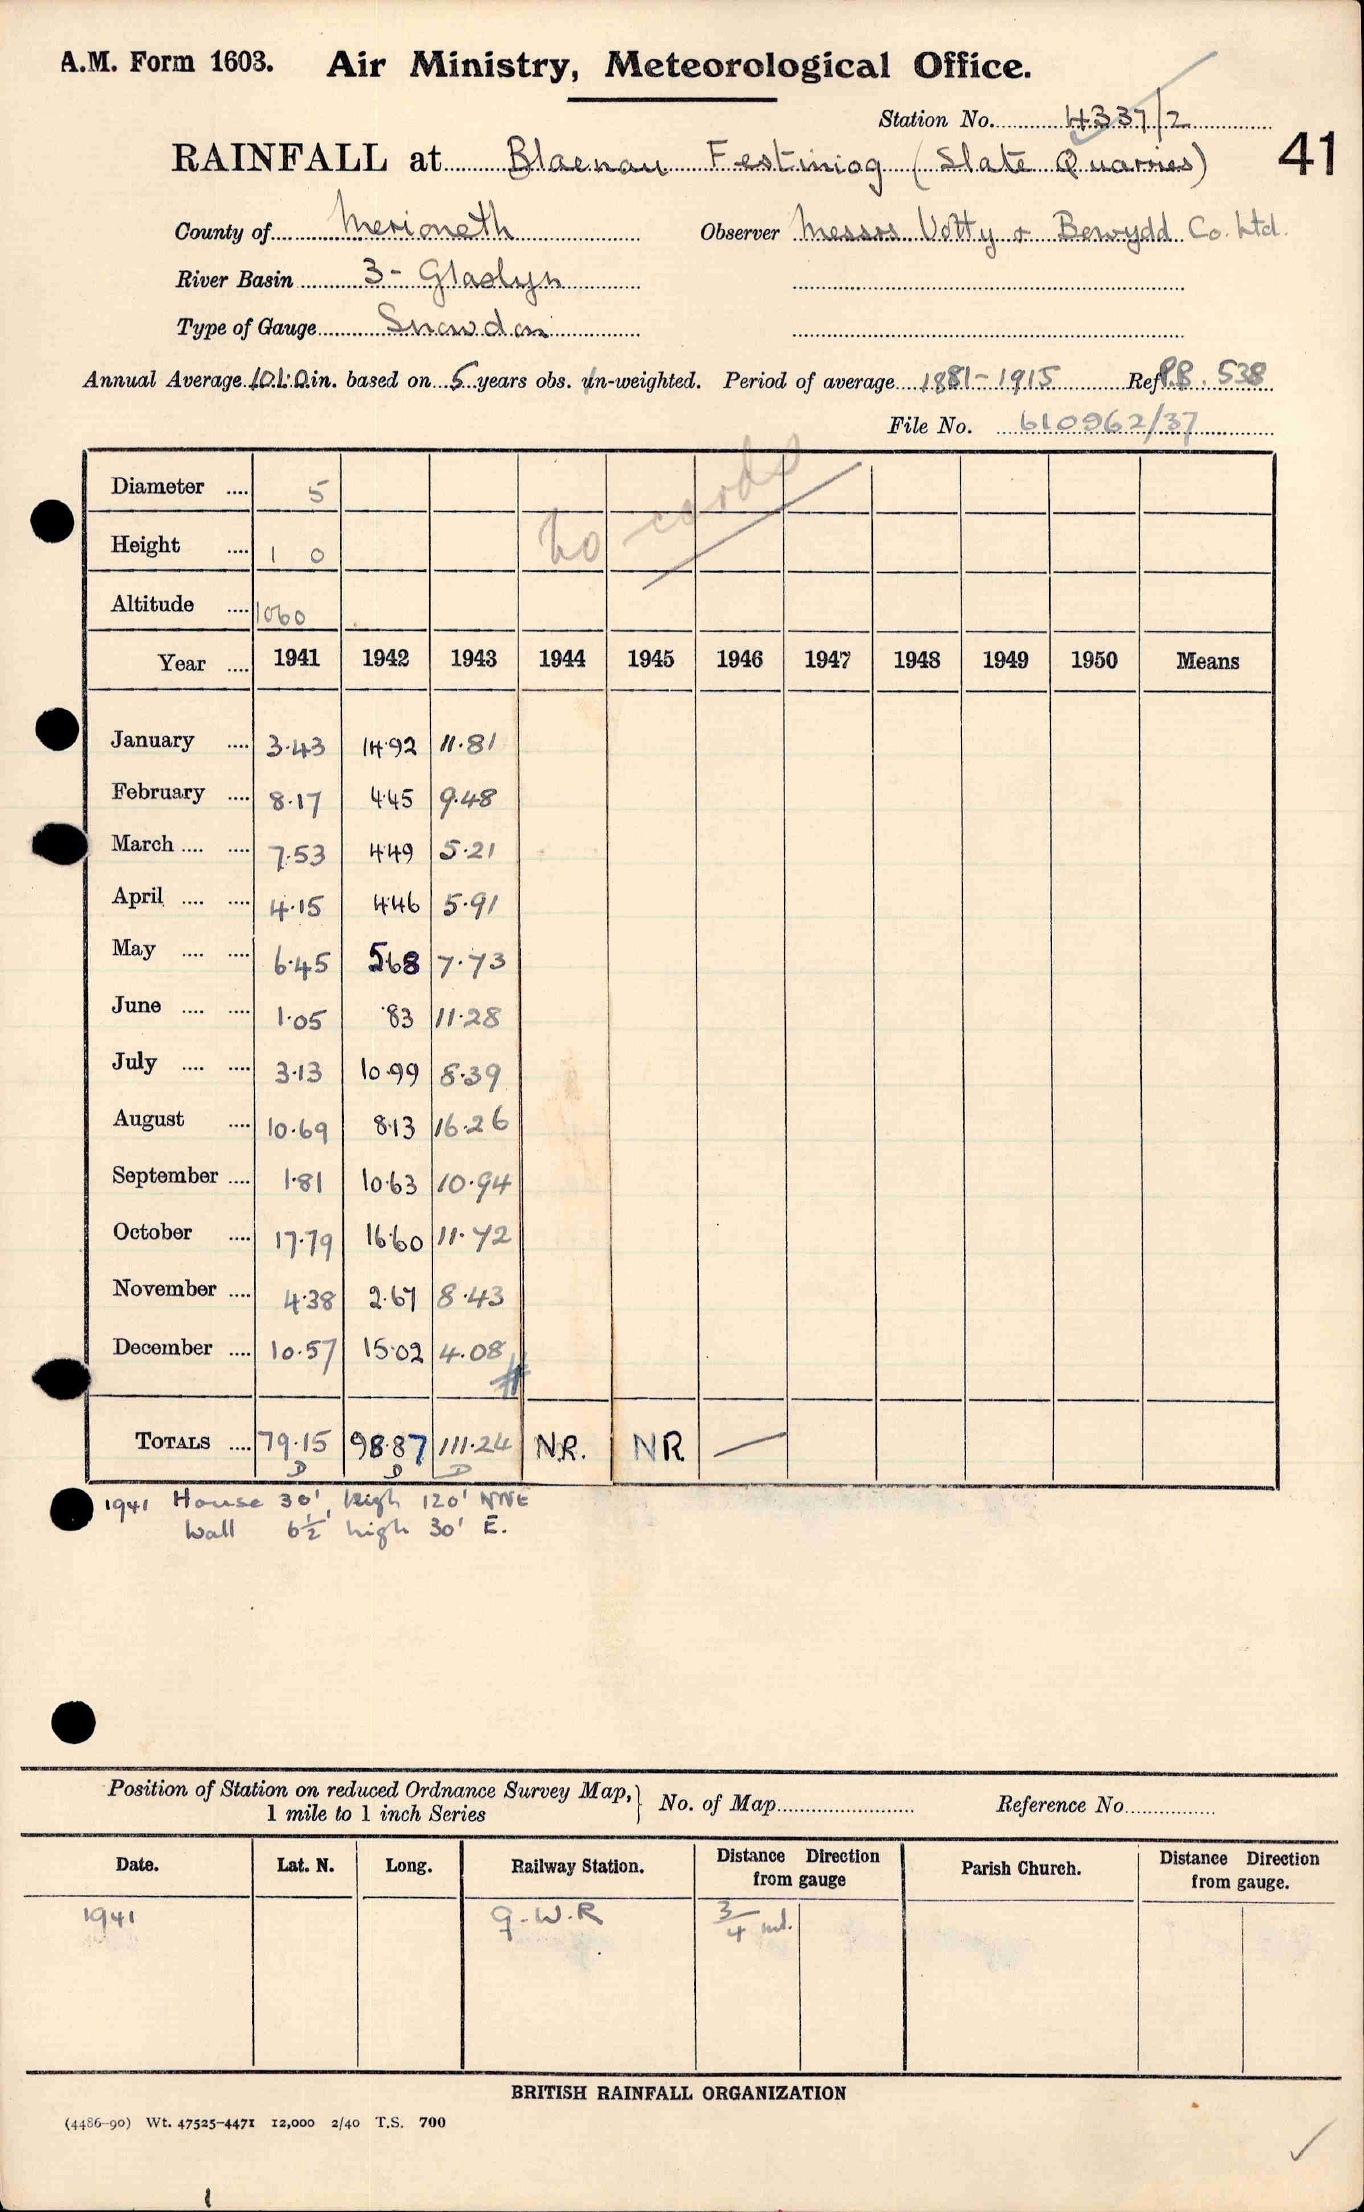 A.M. Form 1603. Air Ministry, Meteorological Office.
Station No. 4337/2
RAINFALL at Blaenau Festiniog (Slate Quarries) 41
County of Merioneth Observer Messrs Votty & Bowydd Co. Ltd.
River Basin 3- Glaslyn
Type of Gauge Snowdon
Annual Average 101.0 in. based on 5 years obs. un-weighted. Period of average 1881-1915 Ref P.B. 538
File No. 610962/37
no cards
Diameter .... 5
Height .... 1 0
Altitude .... 1060
Year .... 1941 1942 1943 1944 1945 1946 1947 1948 1949 1950 Means
January .... 3.43 14.92 11.81
February .... 8.17 4.45 9.48
March .... .... 7.53 4.49 5.21
April .... .... 4.15 4.46 5.91
May .... .... 6.45 5.68 7.73
June .... .... 1.05 .83 11.28
July .... .... 3.13 10.99 8.39
August .... 10.69 8.13 16.26
September .... 1.81 10.63 10.94
October .... 17.79 16.60 11.72
November .... 4.38 2.67 8.43
December .... 10.57 15.02 4.08
TOTALS .... 79.15 98.87 111.24 N.R. NR —
D D D
1941 House 30' high 120' NNE
Wall 6½' high 30' E.
Position of Station on reduced Ordnance Survey Map, 1 mile to 1 inch Series } No. of Map Reference No.
Date. Lat. N. Long. Railway Station. Distance Direction from gauge Parish Church. Distance Direction from gauge.
1941 G.W.R 3/4 ml.
BRITISH RAINFALL ORGANIZATION
(4486-90) Wt. 47525-4471 12,000 2/40 T.S. 700